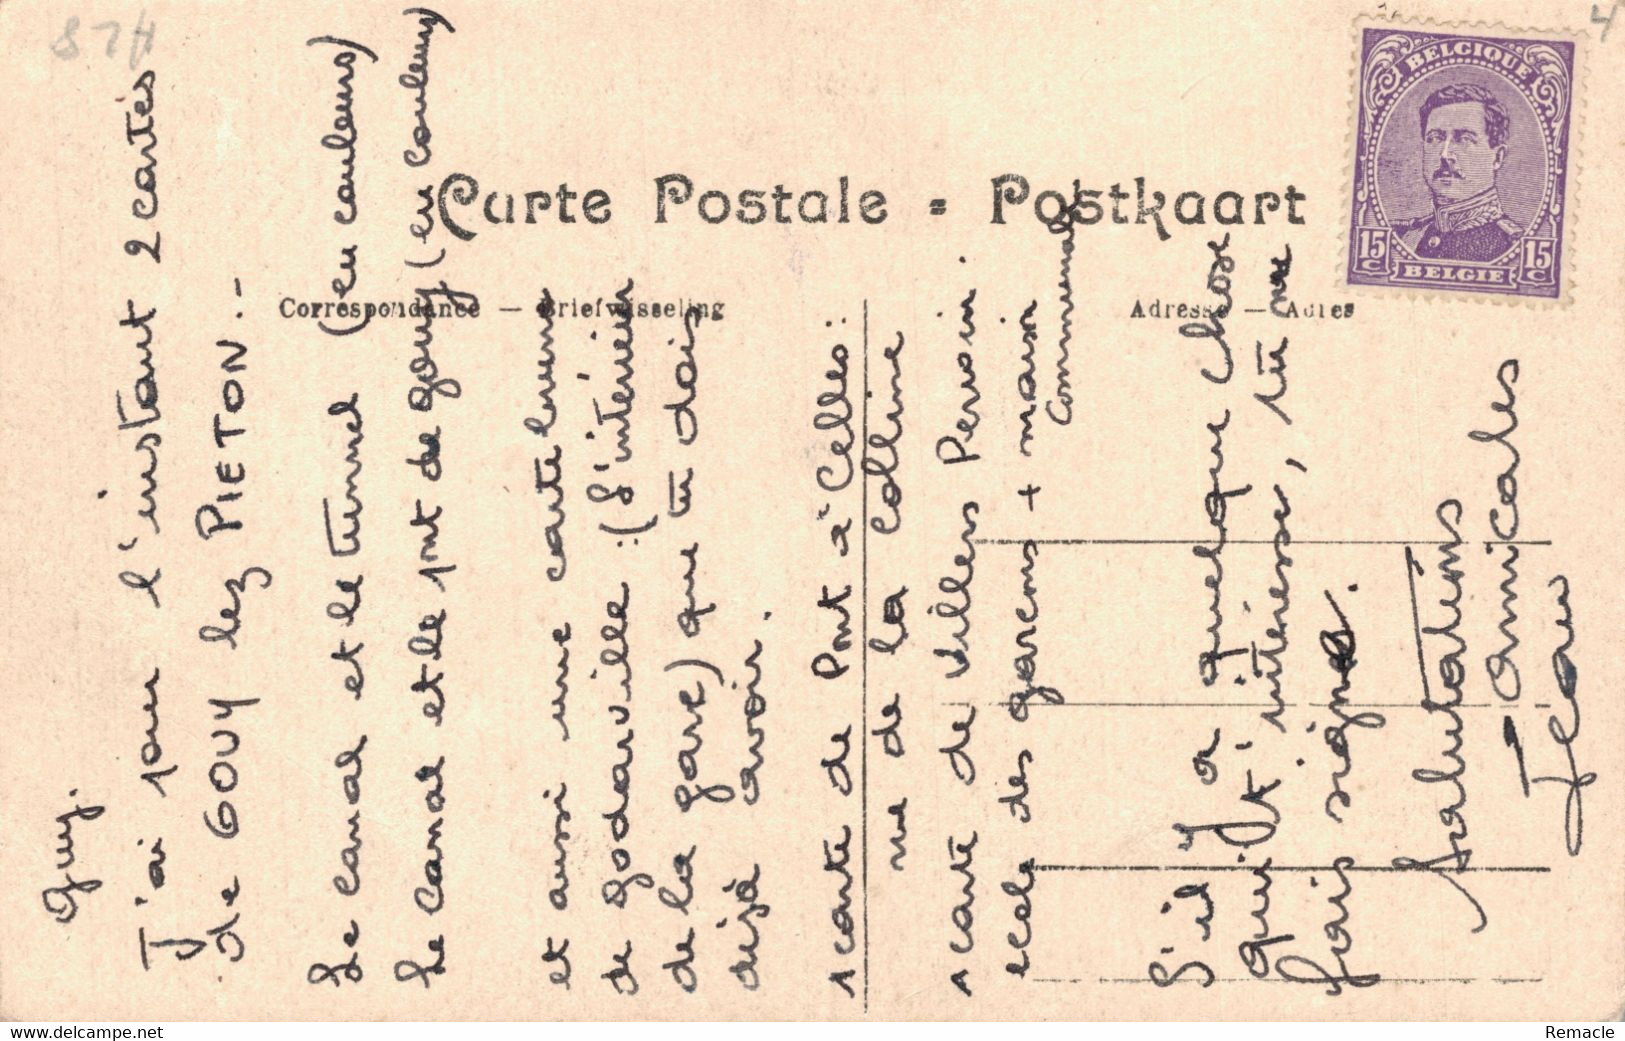 Carte Postale = Postkaart
Correspondance — Briefwisseling
Adresse — Adres
BELGIQUE
15 C
15 C
BELGIE
4
Guy.
J'ai pour l'instant 2 cartes
de GOUY lez PIETON.-
Le canal et le tunnel (en couleurs)
Le canal et le pont de gouy (en couleurs)
et aussi une carte
de godarville : (L'intérieur
de la gare) que tu dois
déjà avoir.
1 carte de Pont à Celles :
rue de la Colline
1 carte de Villers Perwin.
école des garçons + maison
communale
S'il y a quelque chose
qui t'intéresse, tu me
fais signe.
Salutations
amicales
Jean
delcampe.net
Remacle